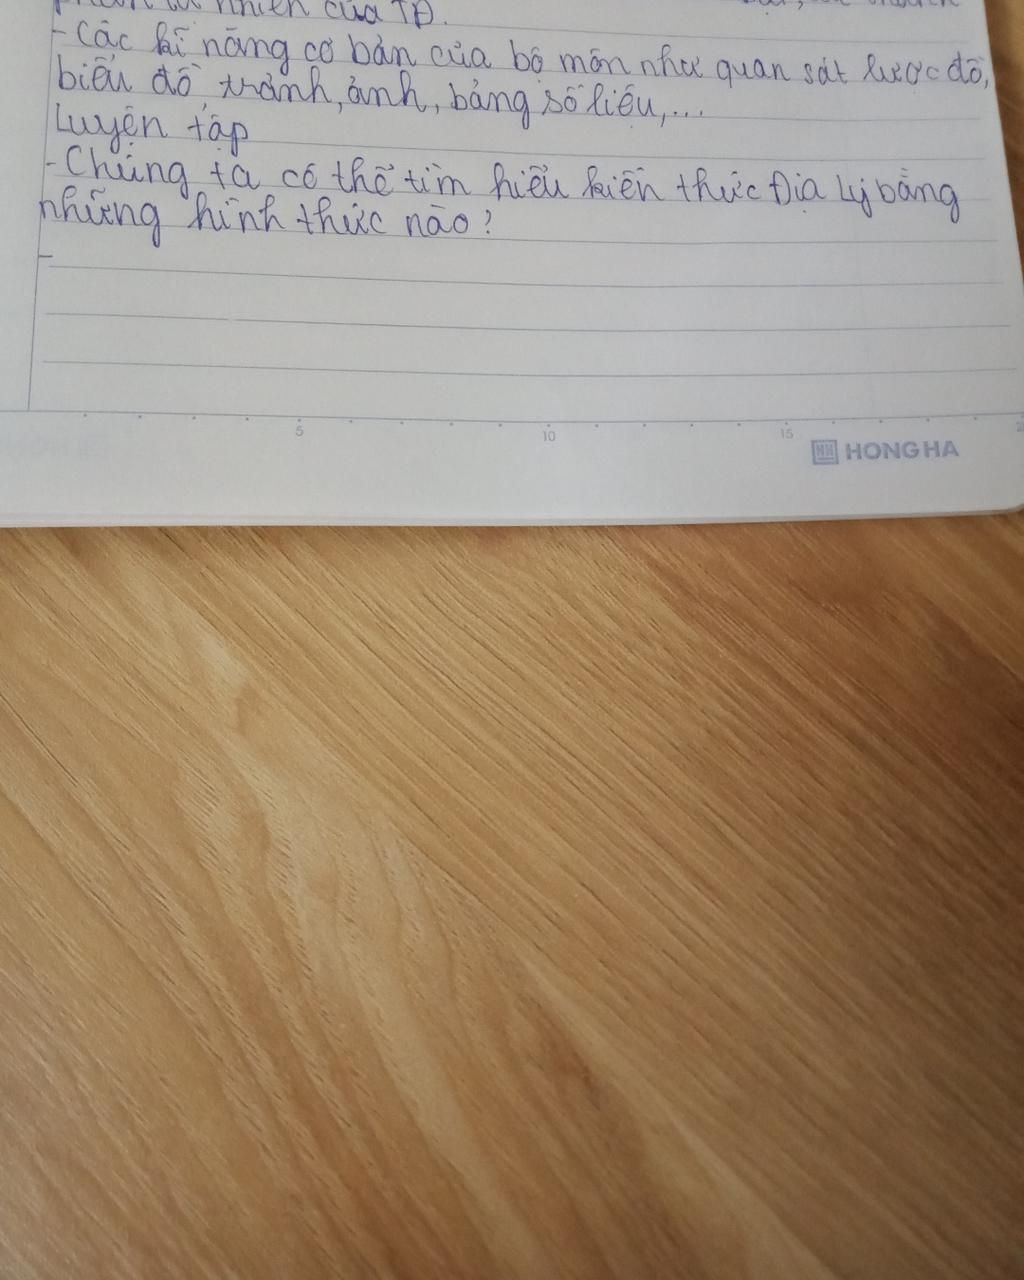 nhiên của TĐ.
- Các kĩ năng cơ bản của bộ môn như quan sát lược đồ,
biểu đồ tranh, ảnh, bảng số liệu,...
Luyện tập
- Chúng ta có thể tìm hiểu kiến thức Địa Lý bằng
những hình thức nào?
-
5 10 15
HONG HA